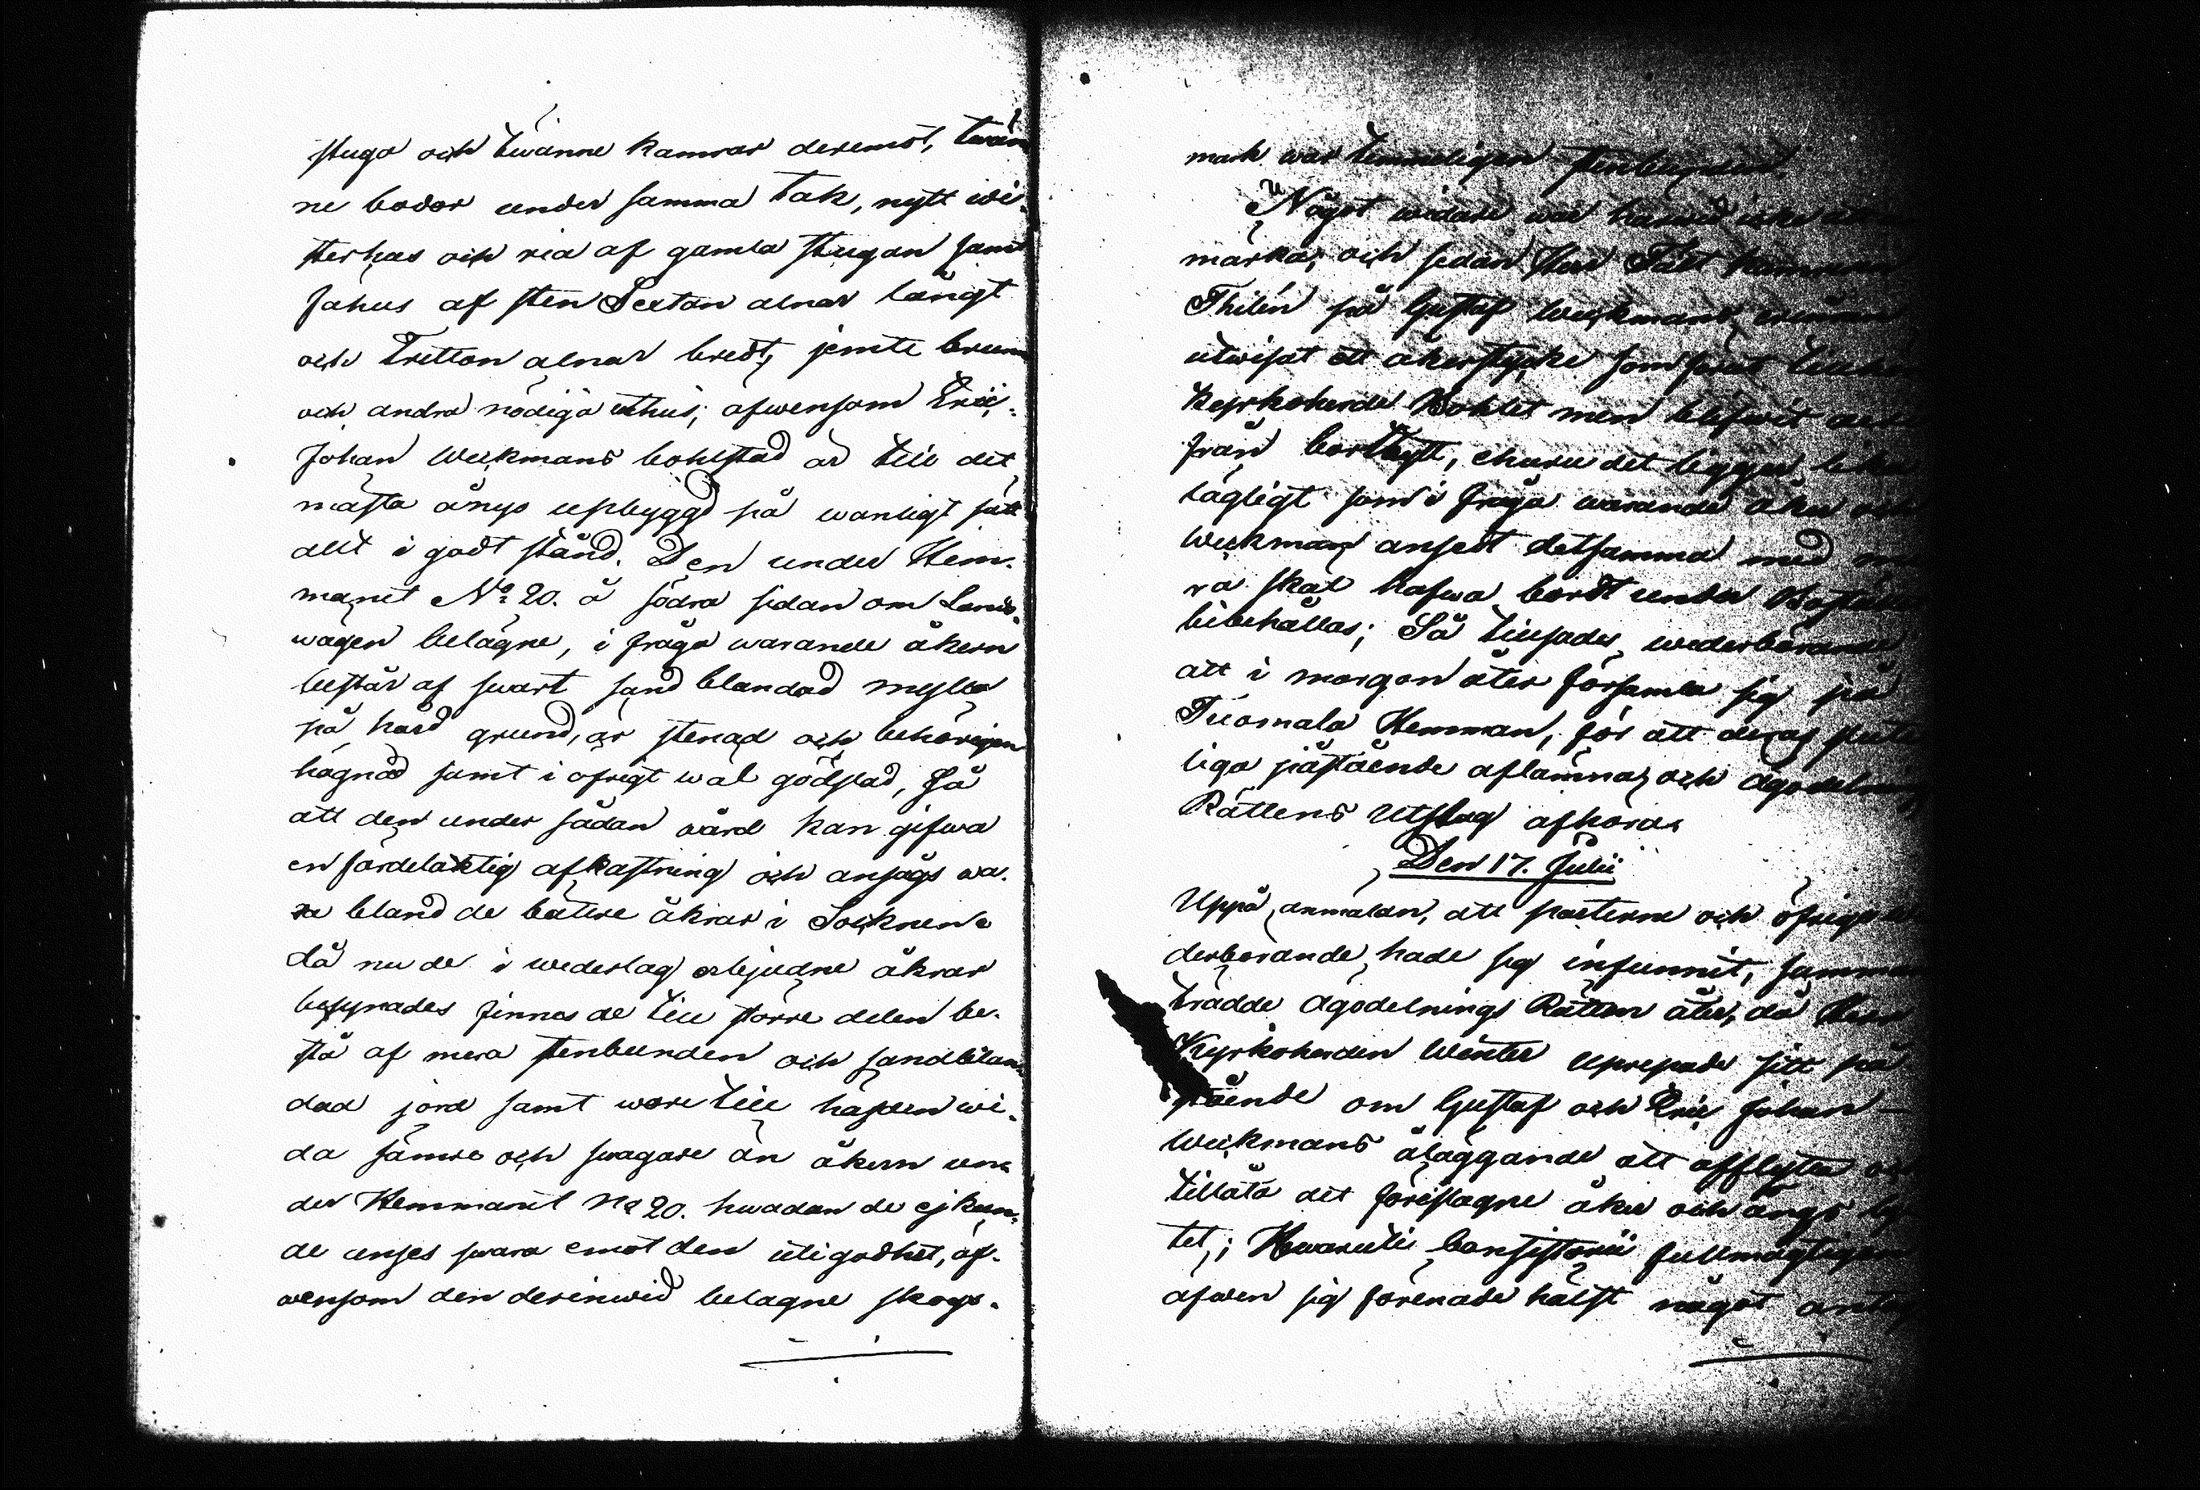 stuga och twänne kamrar deremot, twän
ne bodor under samma tak, nytt wi-
sterhus och ria af gamla stugan samt
fähus af sten Sextan alnar långt
och Tretton alnar bredt, jemte brunn
och andra nödiga uthus; äfwensom Eric
Johan Weckmans bohlstad är till det
mästa ånyo upbyggd på wanligt sätt
allt i godt stånd. Den under Hem-
manet No 20. å södra sidan om Lands-
wägen belägne, i fråga warande åkern
består af swart sand blandad mylla
på hård grund, är stenad och behörigen
hägnad samt i öfrigt wäl gödslad, så
att den under sådan wård kan gifwa
en fördelaktig afkastning och ansågs wa-
ra bland de bättre åkrar i Socknen
då nu de i wederlag erbjudne åkrar
besynades finnas de till större delen be-
stå af mera stenbunden och sandblan-
dad jord samt wore till häfden wi-
da sämre och swagare än åkern un-
der Hemmanet No 20. hwadan de ej kun-
de anses swara emot den uti godhet, äf-
wensom den derinwid belägne skogs-
mark war temmeligen stenbunden.
Något widare war härwid icke att
märka; och sedan Herr
Thilén på Gustaf Weckmans
utwisat ett åkerstycke som förut
Kyrkoherde Bohlet men blifwit
från bortbytt, ehuru det ligger lika
lägligt som i fråga warande åker och
Weckman ansedt detsamma med
ra skäl hafwa bordt under
bibehållas; Så tillsades wederbörande
att i morgon åter församla sig på
Tuomala Hemman, för att deras
liga påstående aflämna, och Ägodelnings
Rättens Utslag afhöra.
Den 17. Julii
Uppå anmälan, att parterne och öfrige
derbörande hade sig infunnit, samman
trädde Ägodelnings Rätten åter, då Herr
Kyrkoherden Winter uprepade sitt på
stående om Gustaf och Eric Johan
Weckmans åläggande att afflytta och
tillåta det föreslagne åker och ängs by-
tet; Hwaruti Consistorii fullmägtigen
äfwen sig förenade hälst något